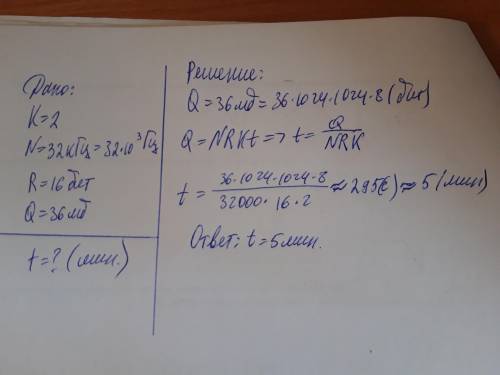 Дано:
K=2
N=32кГц=32·10³Гц
R=16бит
Q=36мб
t=? (мин.)
Решение:
Q=36мб=36·1024·1024·8(бит)
Q=NRKt=>t=Q/NRK
t=36·1024·1024·8/32000·16·2≈295(с)≈5(мин)
Ответ: t=5мин.